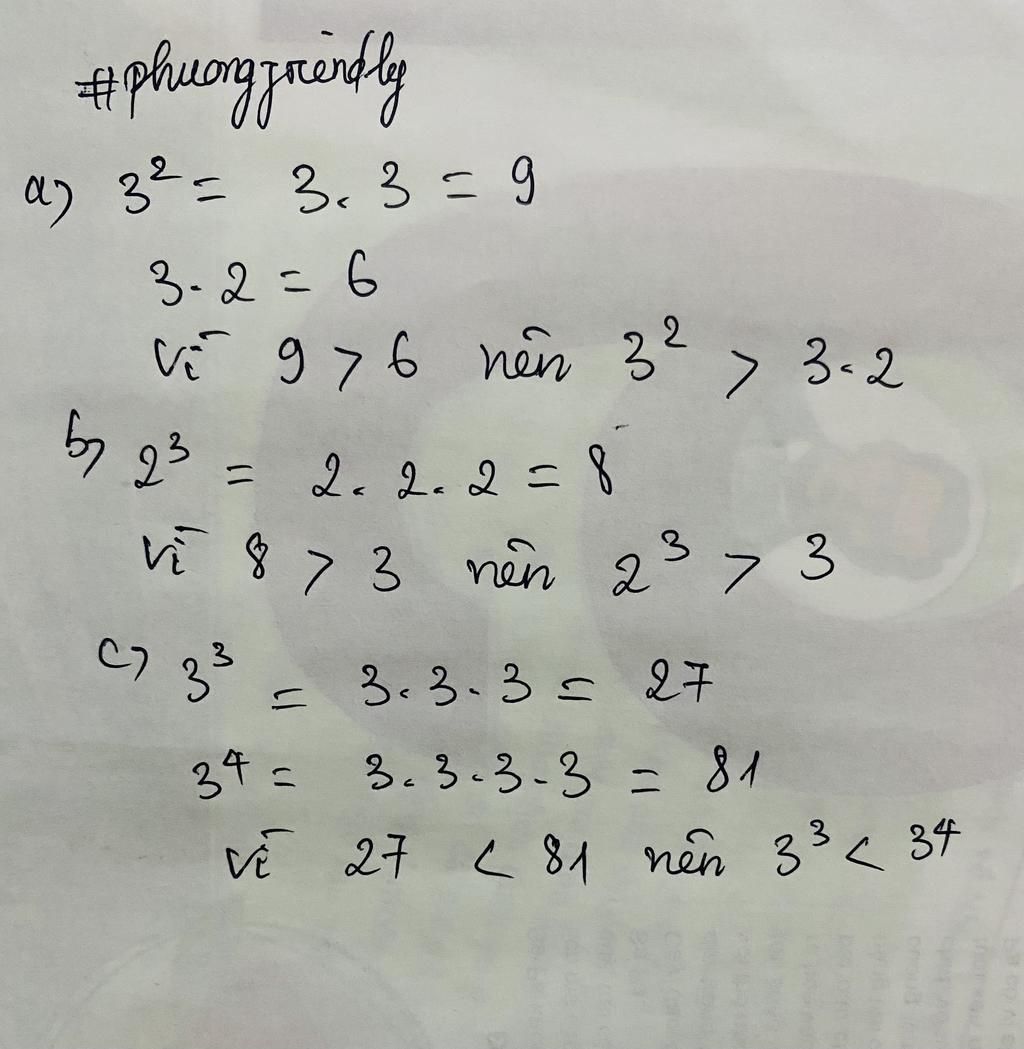 #phuongfriendly
a) 3² = 3. 3 = 9
3. 2 = 6
Vì 9 > 6 nên 3² > 3. 2
b) 2³ = 2. 2. 2 = 8
Vì 8 > 3 nên 2³ > 3
c) 3³ = 3. 3. 3 = 27
3⁴ = 3. 3. 3. 3 = 81
Vì 27 < 81 nên 3³ < 3⁴